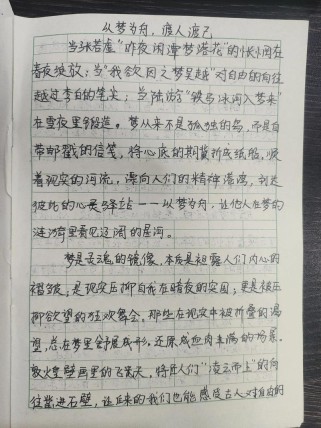 从梦为舟，渡人渡己
当张若虚“昨夜闲潭梦落花”的怅惘在
春夜绽放；当“我欲因之梦吴越”对自由的向往
越过李白的笔尖；当陆游“铁马冰河入梦来”
在雪夜里锻造。梦从来不是孤独的岛，而是自
带邮戳的信笺，将心底的期冀折成纸船，顺
着现实的河流，漫向人们的精神港湾，到达
彼此的心灵驿站——从梦为舟，让他人在梦的
涟漪里看见辽阔的星河。
梦是灵魂的镜像，本质是袒露人们内心的
褶皱，是现实压抑自我在暗夜的突围；更是被压
抑欲望的狂欢舞会。那些在现实中被折叠的渴
望，总在梦里舒展成形，还原成血肉丰满的场景。
敦煌壁画里的飞天，将古人们“凌云而上”的向
往凿进石壁，让后来的我们也能感受古人对自由的